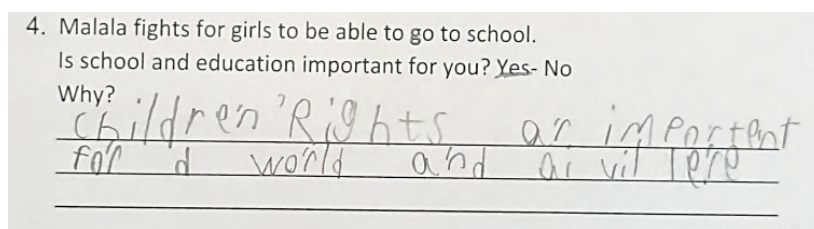 4. Malala fights for girls to be able to go to school.
Is school and education important for you? Yes- No
Why?
Children'Rights ar importent
for d world and ai vil lere